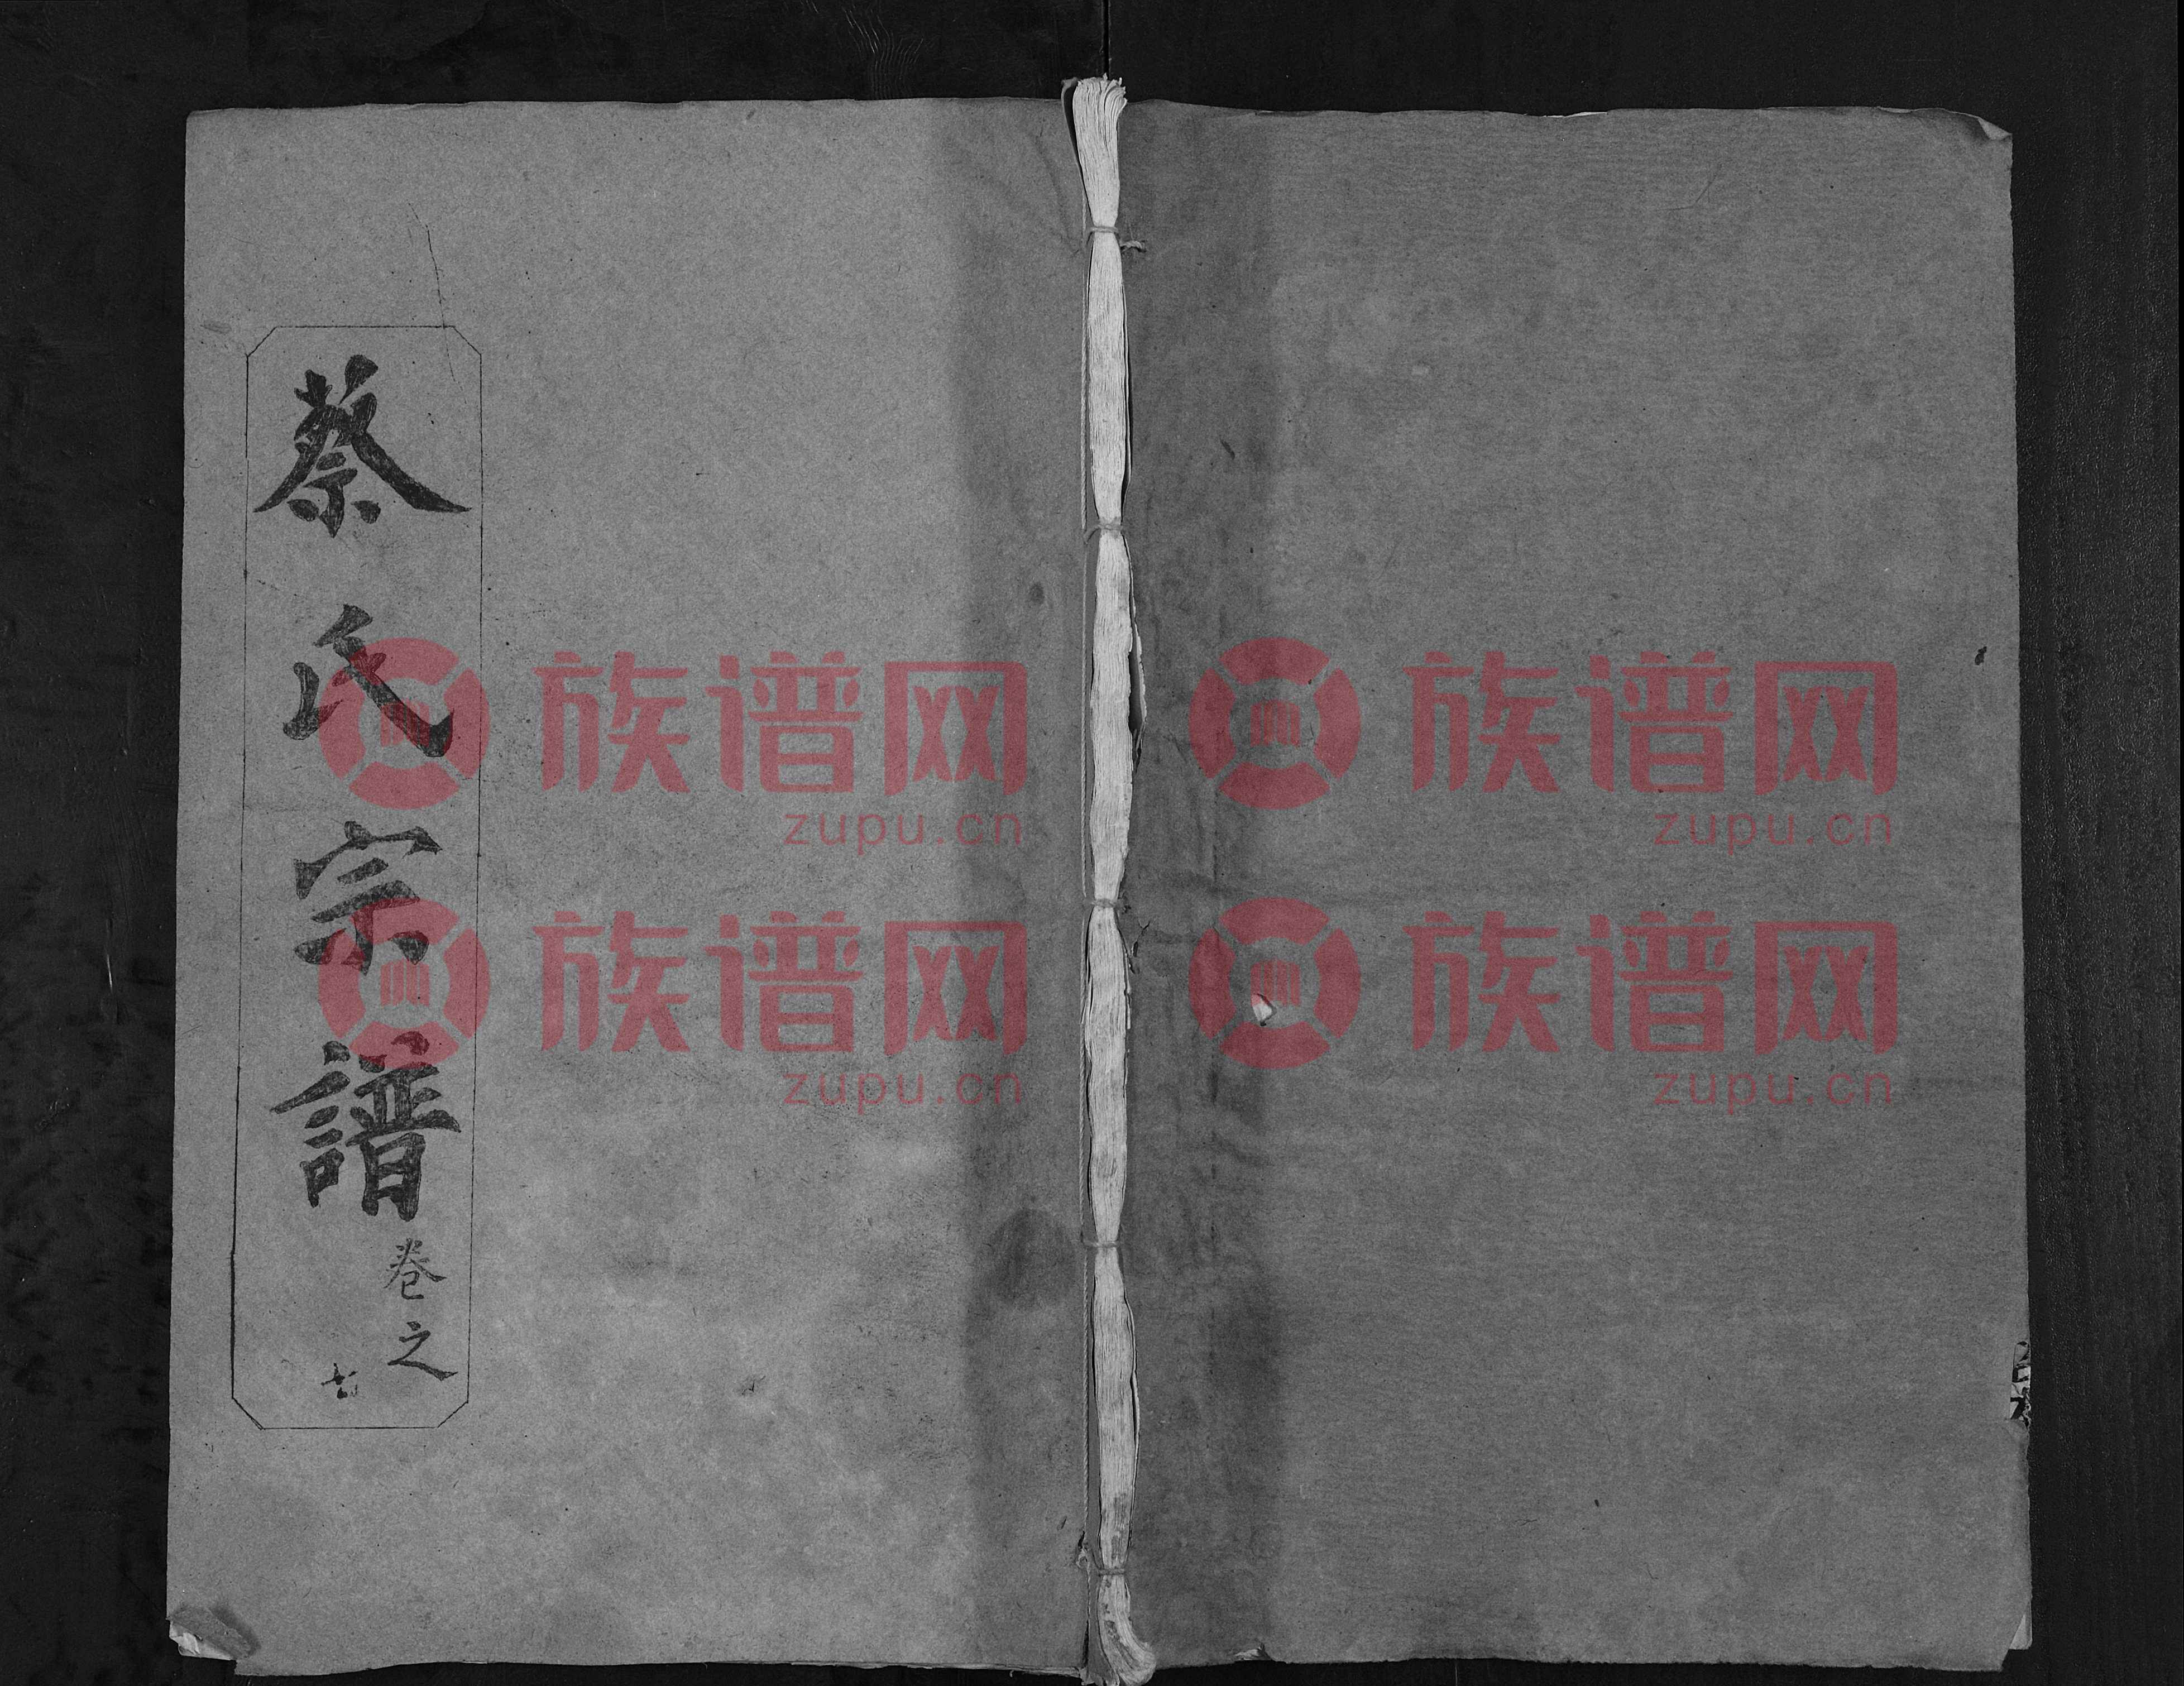 蔡氏宗譜
卷之
族谱网
zupu.cn
族谱网
zupu.cn
族谱网
zupu.cn
族谱网
zupu.cn